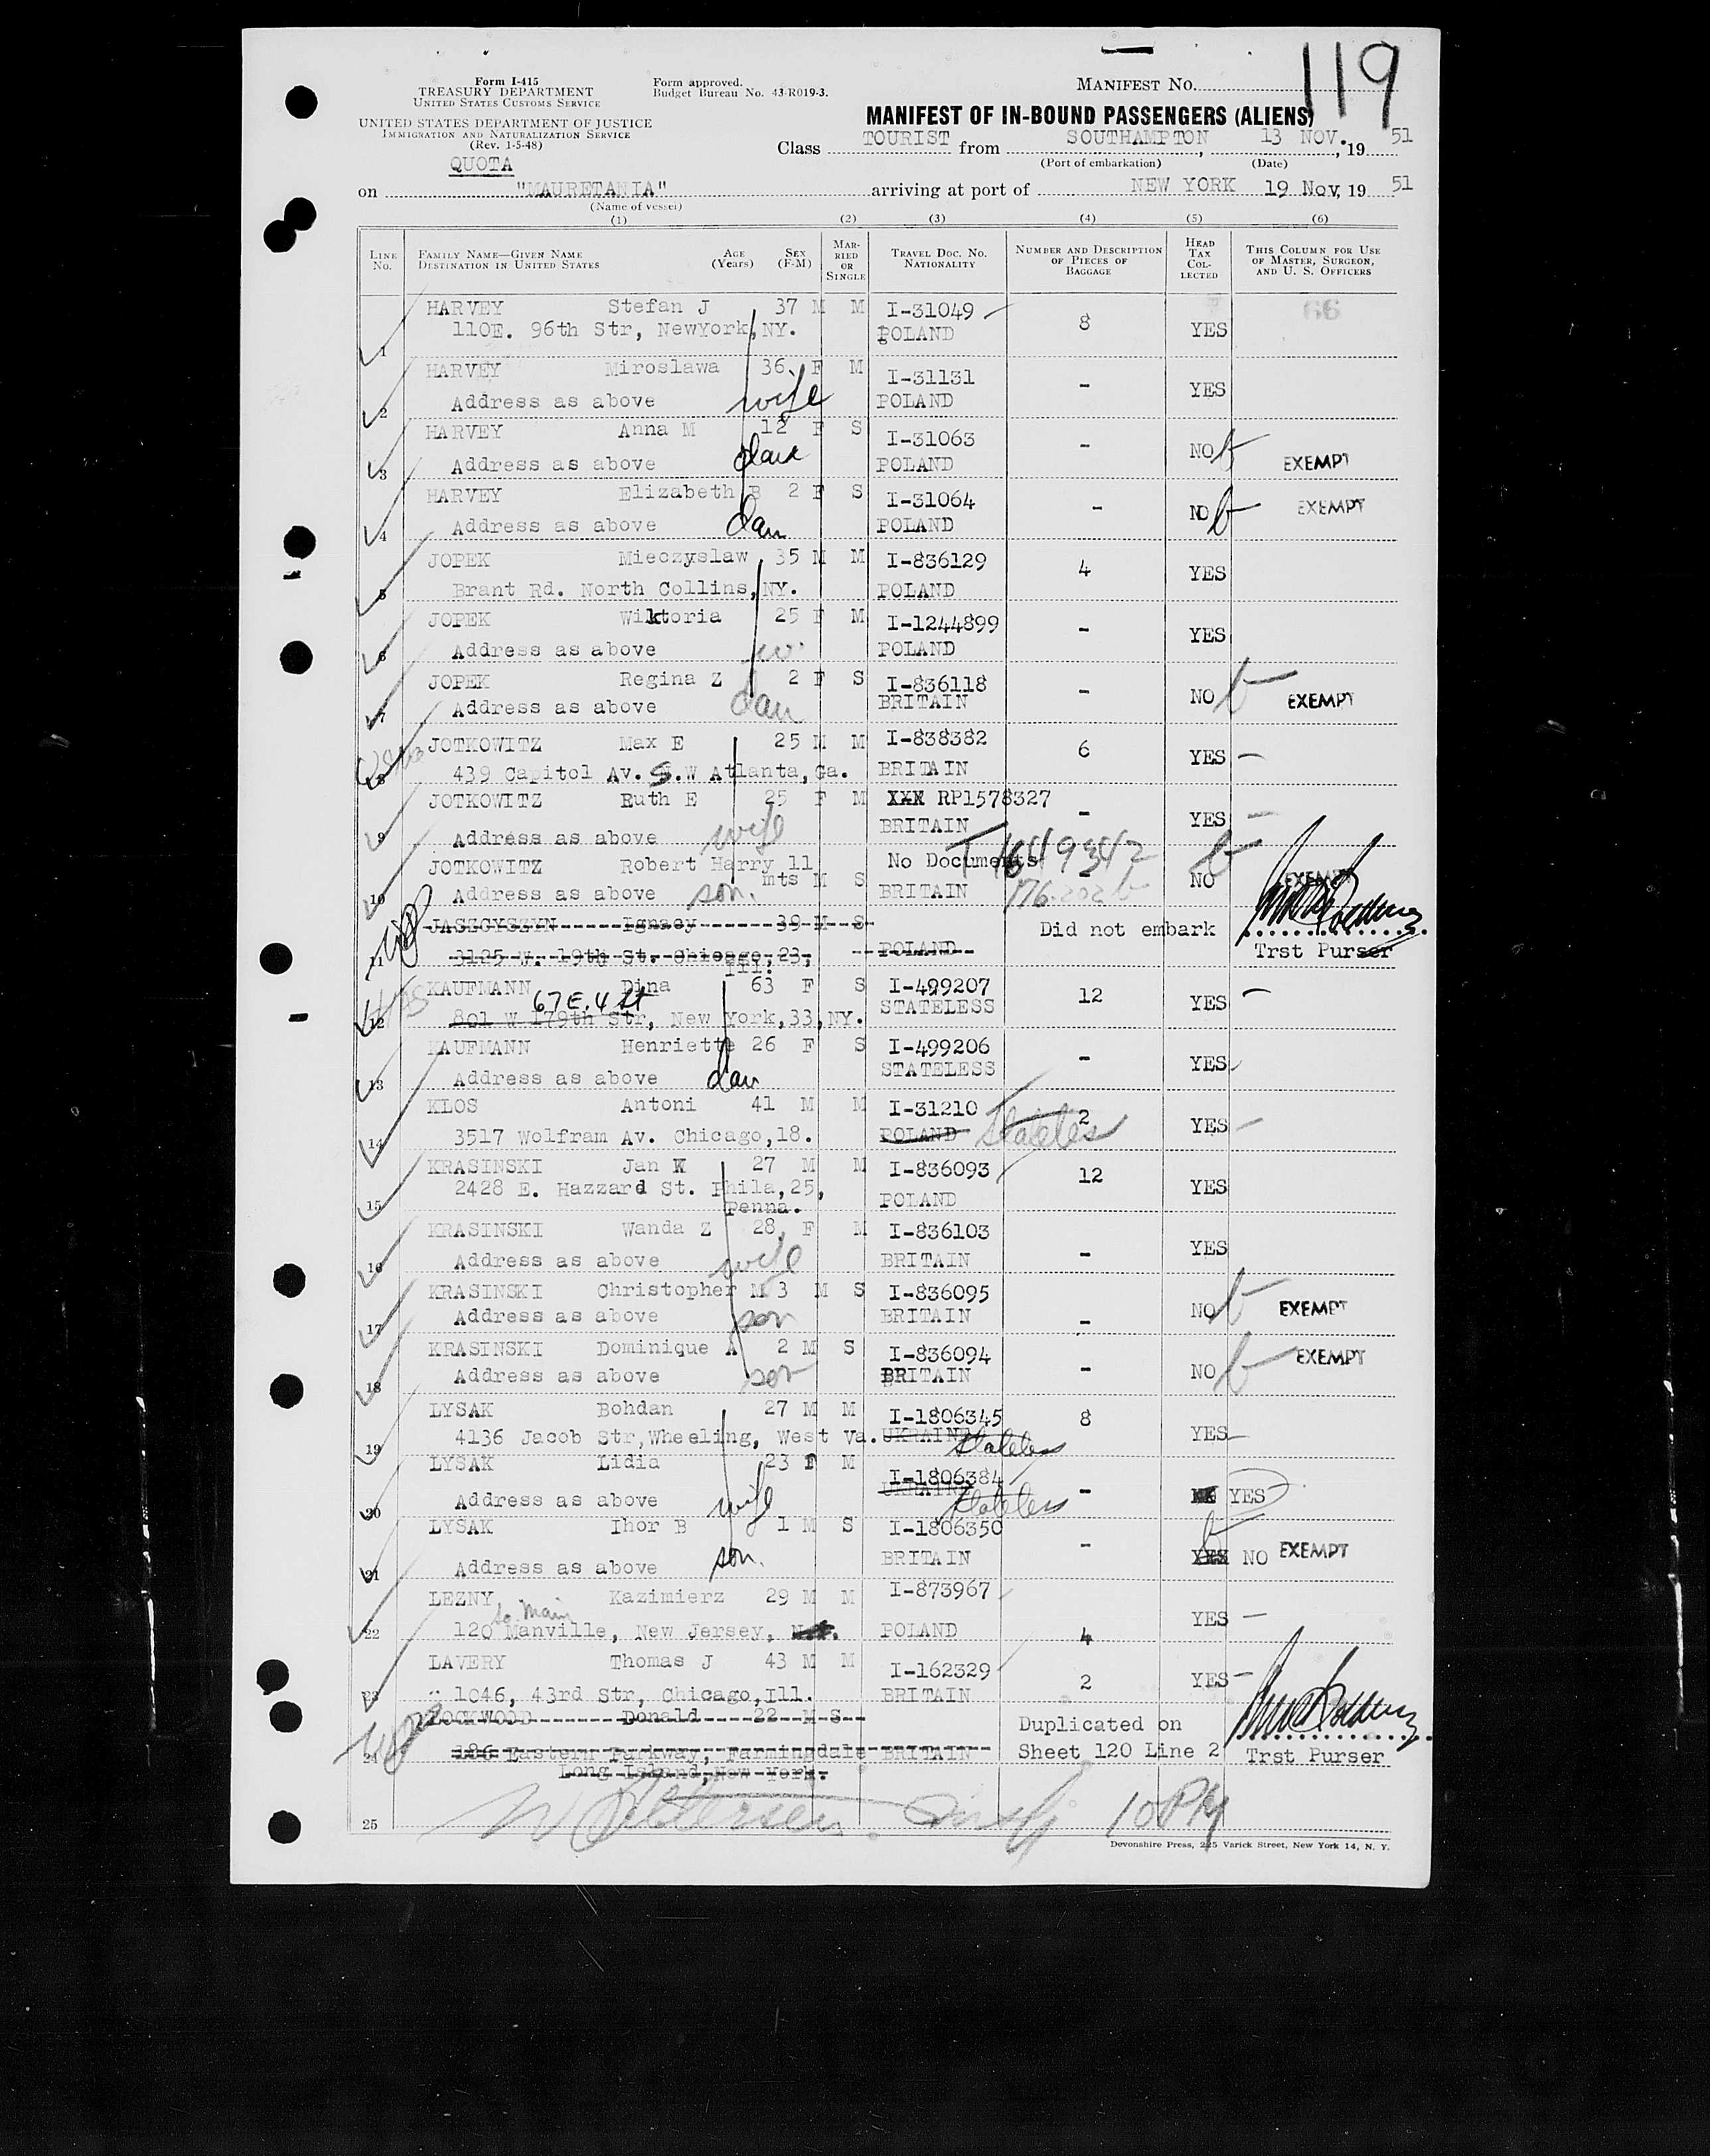 119
Form I-415
TREASURY DEPARTMENT
UNITED STATES CUSTOMS SERVICE
UNITED STATES DEPARTMENT OF JUSTICE
IMMIGRATION AND NATURALIZATION SERVICE
(Rev. 1-5-48)
QUOTA
Form approved.
Budget Bureau No. 43-R019-3.
MANIFEST NO.
MANIFEST OF IN-BOUND PASSENGERS (ALIENS)
Class TOURIST from SOUTHAMPTON, 13 NOV., 19 51
(Port of embarkation) (Date)
on "MAURETANIA" arriving at port of NEW YORK 19 Nov, 19 51
(Name of vessel)
(1) (2) (3) (4) (5) (6)
LINE No. FAMILY NAME—GIVEN NAME DESTINATION IN UNITED STATES AGE (Years) SEX (F-M) MARRIED OR SINGLE TRAVEL DOC. NO. NATIONALITY NUMBER AND DESCRIPTION OF PIECES OF BAGGAGE HEAD TAX COLLECTED THIS COLUMN FOR USE OF MASTER, SURGEON, AND U. S. OFFICERS
HARVEY Stefan J 37 M M I-31049 8 YES 66
1 110E. 96th Str, NewYork, NY. POLAND
HARVEY Miroslawa 36 F M I-31131 - YES
2 Address as above wife POLAND
HARVEY Anna M 12 F S I-31063 - NO EXEMPT
3 Address as above POLAND
HARVEY Elizabeth B 2 F S I-31064 - NO EXEMPT
4 Address as above dau POLAND
JOPEK Mieczyslaw 35 M M I-836129 4 YES
5 Brant Rd. North Collins, NY. POLAND
JOPEK Wiktoria 25 F M I-1244899 - YES
6 Address as above w. POLAND
JOPEK Regina Z 2 F S I-836118 - NO EXEMPT
7 Address as above dau BRITAIN
JOTKOWITZ Max E 25 M M I-838382 6 YES
8 439 Capitol Av. S.W Atlanta, Ga. BRITAIN
JOTKOWITZ Ruth E 25 F M XXX RP1578327 - YES
9 Address as above wife BRITAIN
JOTKOWITZ Robert Harry 11 mts M S No Documents T 1649342 NO EXEMPT
10 Address as above son. BRITAIN
JASZCYSZYN Ignacy 39 M S Did not embark
11 3125 W. 19th St. Chicago, 23, Ill. POLAND Trst Purser
KAUFMANN Dina 63 F S I-499207 12 YES
67 E. 4 St
12 801 W 179th Str, New York, 33, NY. STATELESS
KAUFMANN Henriette 26 F S I-499206 - YES
13 Address as above dau STATELESS
KLOS Antoni 41 M M I-31210 2 YES
14 3517 Wolfram Av. Chicago, 18. POLAND Stateless
KRASINSKI Jan W 27 M M I-836093 12 YES
15 2428 E. Hazzard St. Phila, 25, Penna. POLAND
KRASINSKI Wanda Z 28 F M I-836103 - YES
16 Address as above wife BRITAIN
KRASINSKI Christopher M 3 M S I-836095 - NO EXEMPT
17 Address as above son BRITAIN
KRASINSKI Dominique A 2 M S I-836094 - NO EXEMPT
18 Address as above son BRITAIN
LYSAK Bohdan 27 M M I-1806345 8 YES
19 4136 Jacob Str, Wheeling, West Va. UKRAINE Stateless
LYSAK Lidia 23 F M I-1806384 - YES
20 Address as above wife UKRAINE Stateless
LYSAK Ihor B 1 M S I-1806350 - YES NO EXEMPT
21 Address as above son. BRITAIN
LEZNY Kazimierz 29 M M I-873967 4 YES
So. Main
22 120 Manville, New Jersey, POLAND
LAVERY Thomas J 43 M M I-162329 2 YES
23 1046, 43rd Str, Chicago, Ill. BRITAIN
LOCKWOOD Donald 22 M S Duplicated on
24 186 Eastern Parkway, Farmingdale BRITAIN Sheet 120 Line 2 Trst Purser
Long Island, New York.
25 10 PM
Devonshire Press, 225 Varick Street, New York 14, N. Y.